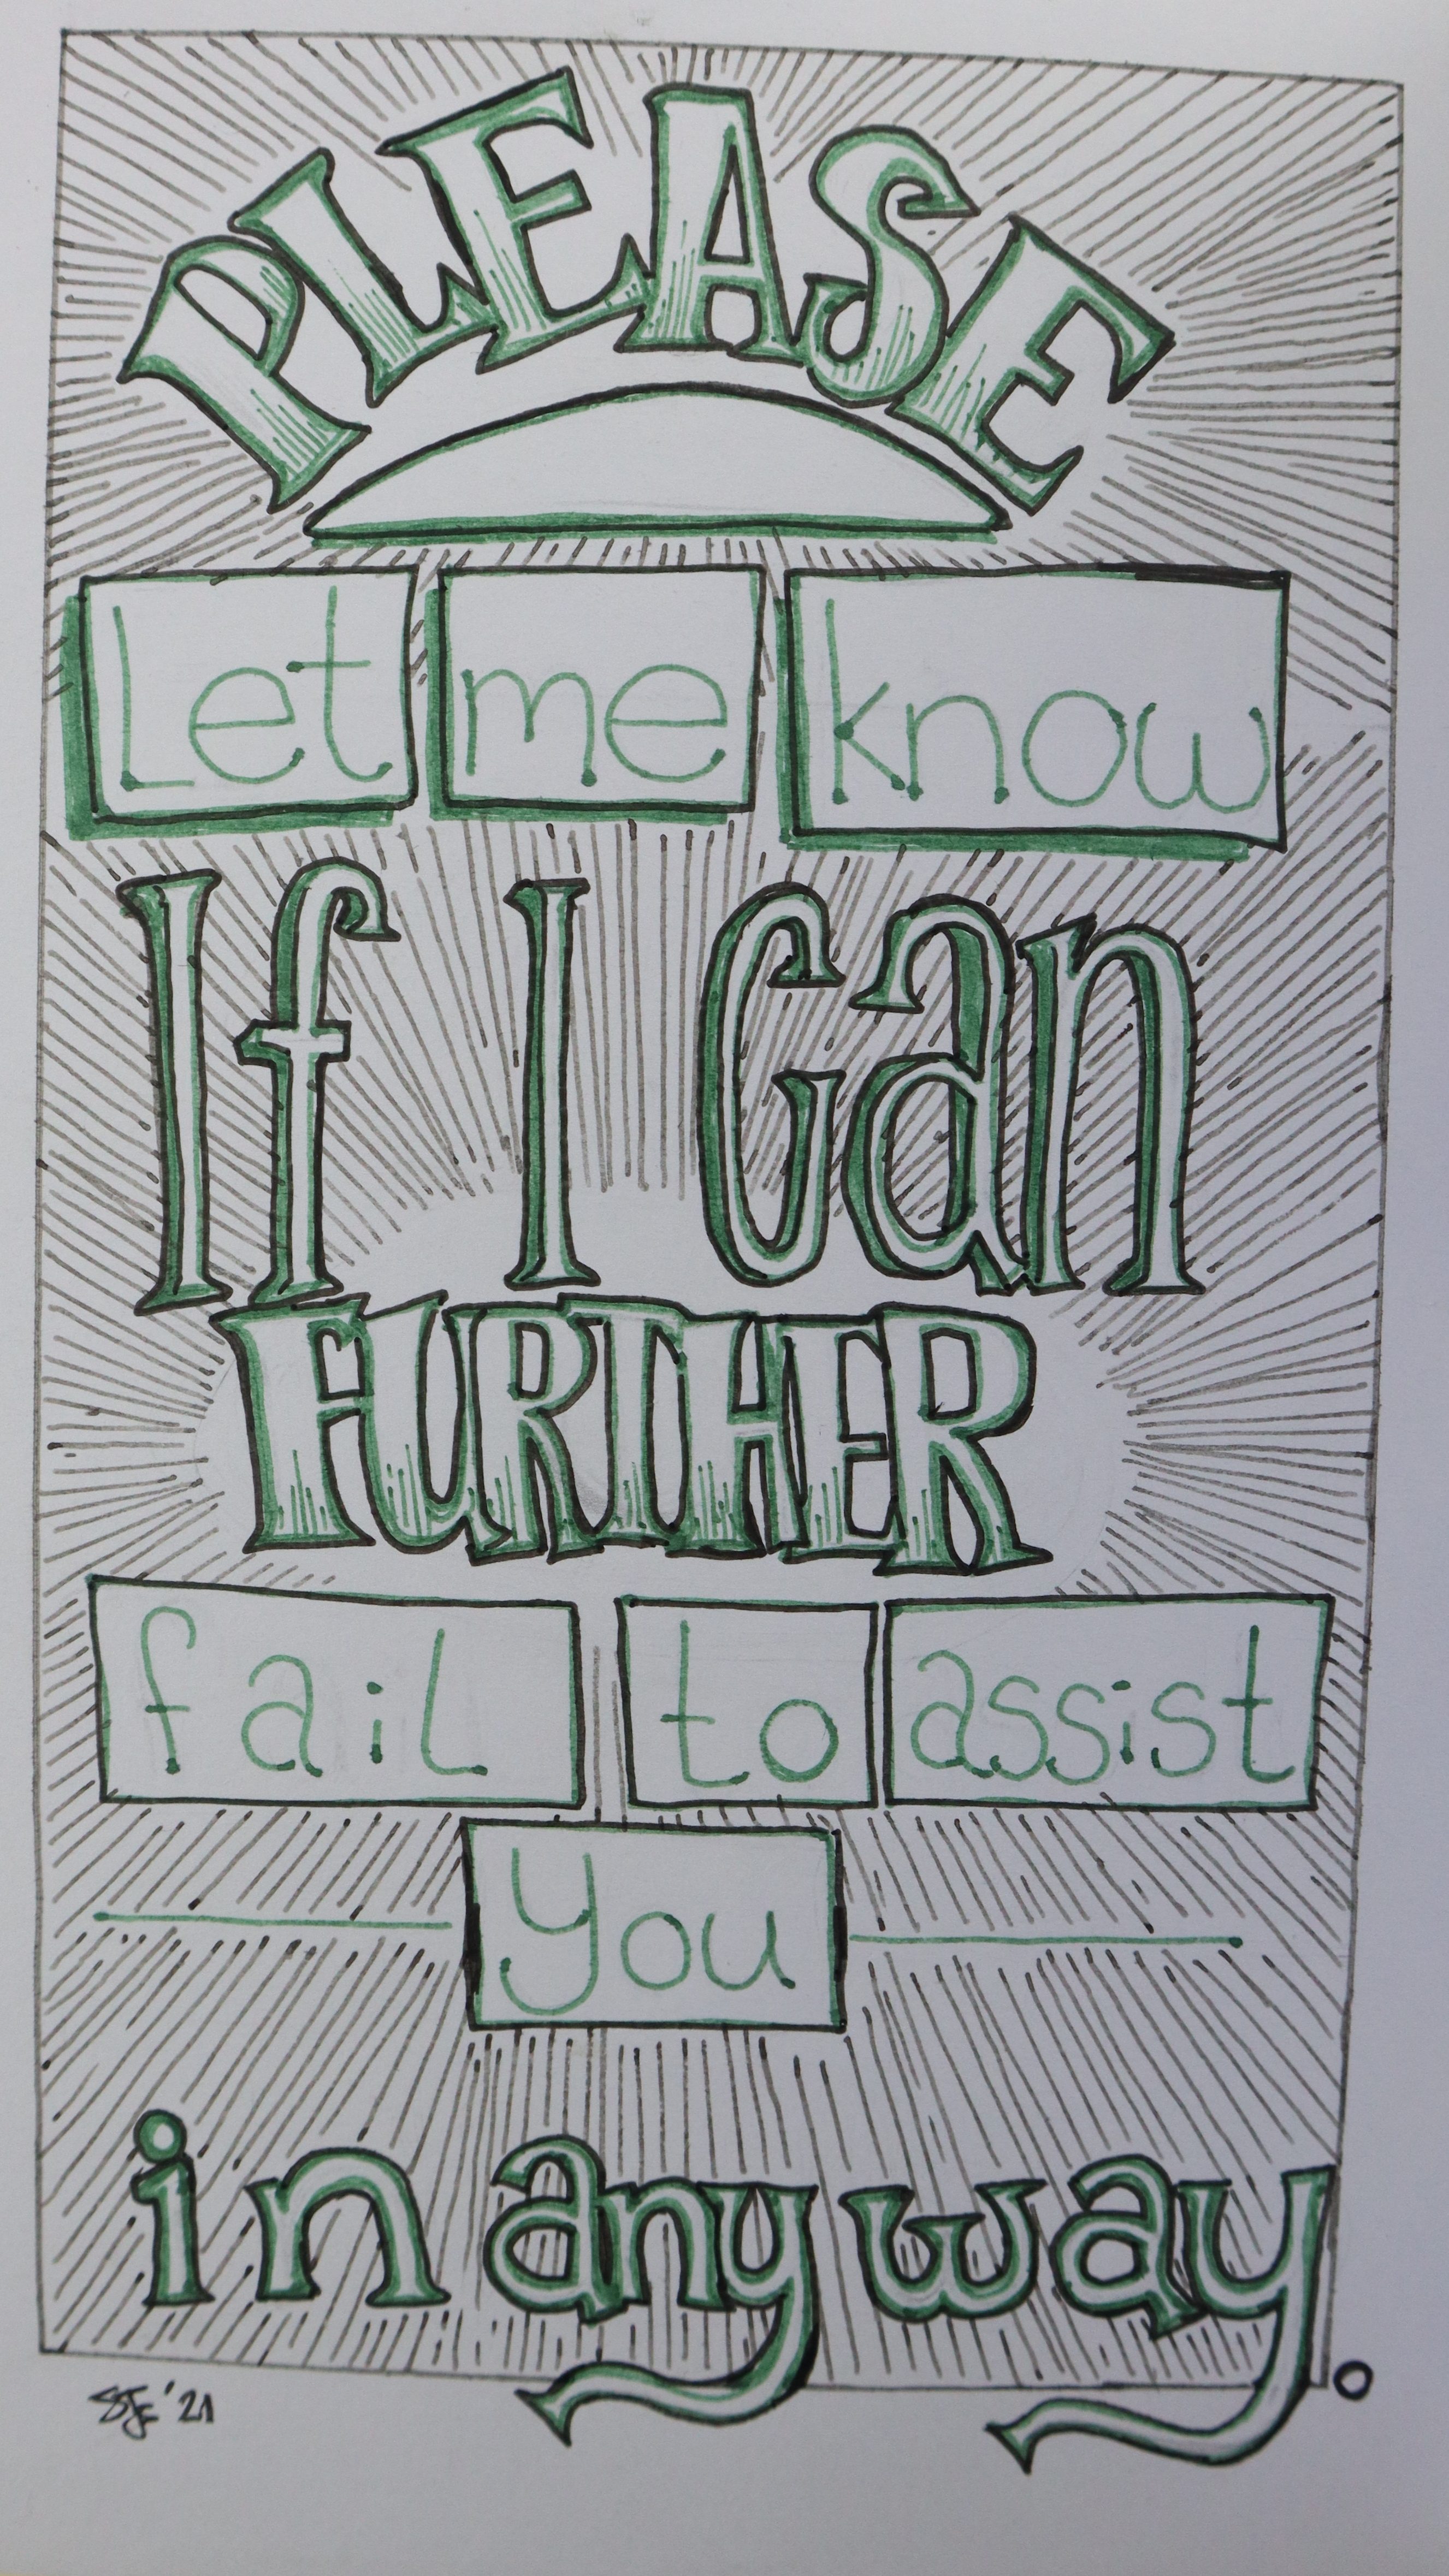 PLEASE
Let me know
If I Can
FURTHER
fail to assist
you
in any way.
SJE '21